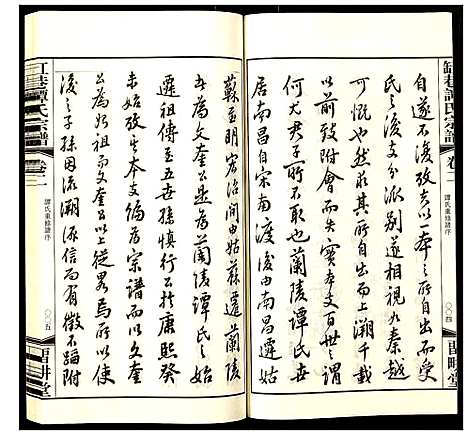 缸巷譚氏宗譜
卷二
譚氏重修譜序
〇〇四
留畊堂
自遂不復攷夫以一本之所自出而受
氏之後支分派别遂相視如秦越
可慨也矣其所自出而上溯千載
以前致夫實本支百世之謂
何尤君子所不敢也蘭陵譚氏
居南昌自宋南渡後由南昌遷
蘇至明宏治間由姑蘇遷蘭陵
者為文奎公為蘭陵譚氏之始
遷祖傳至五世孫慎行公於康熙癸
未始攷其本支編為宗譜而以文奎
公為始祖文奎公以上從畧焉所以使
後之子孫因流溯源信而有徵不蹈附
缸巷譚氏宗譜
卷二
譚氏重修譜序
〇〇五
留畊堂